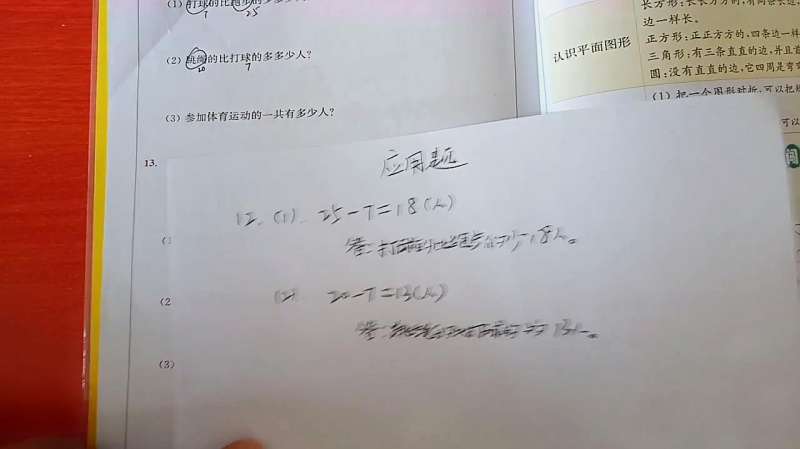 (1) 打球的比跑步的
7 25
(2) 跳绳的比打球的多多少人?
20 7
(3) 参加体育运动的一共有多少人?
13.
(1
(2
(3)
应用题
12. (1). 25-7=18(人)
答:打球的比跑步的少18人。
(2) 20-7=13(人)
答: 13人。
认识平面图形
长方形:长长方方的,有两条长边
边一样长。
正方形:正正方方的,四条边一样
三角形:有三条直直的边,并且首
圆:没有直直的边,它四周是弯
(1) 把一个图形对折,可以把
可以
阅